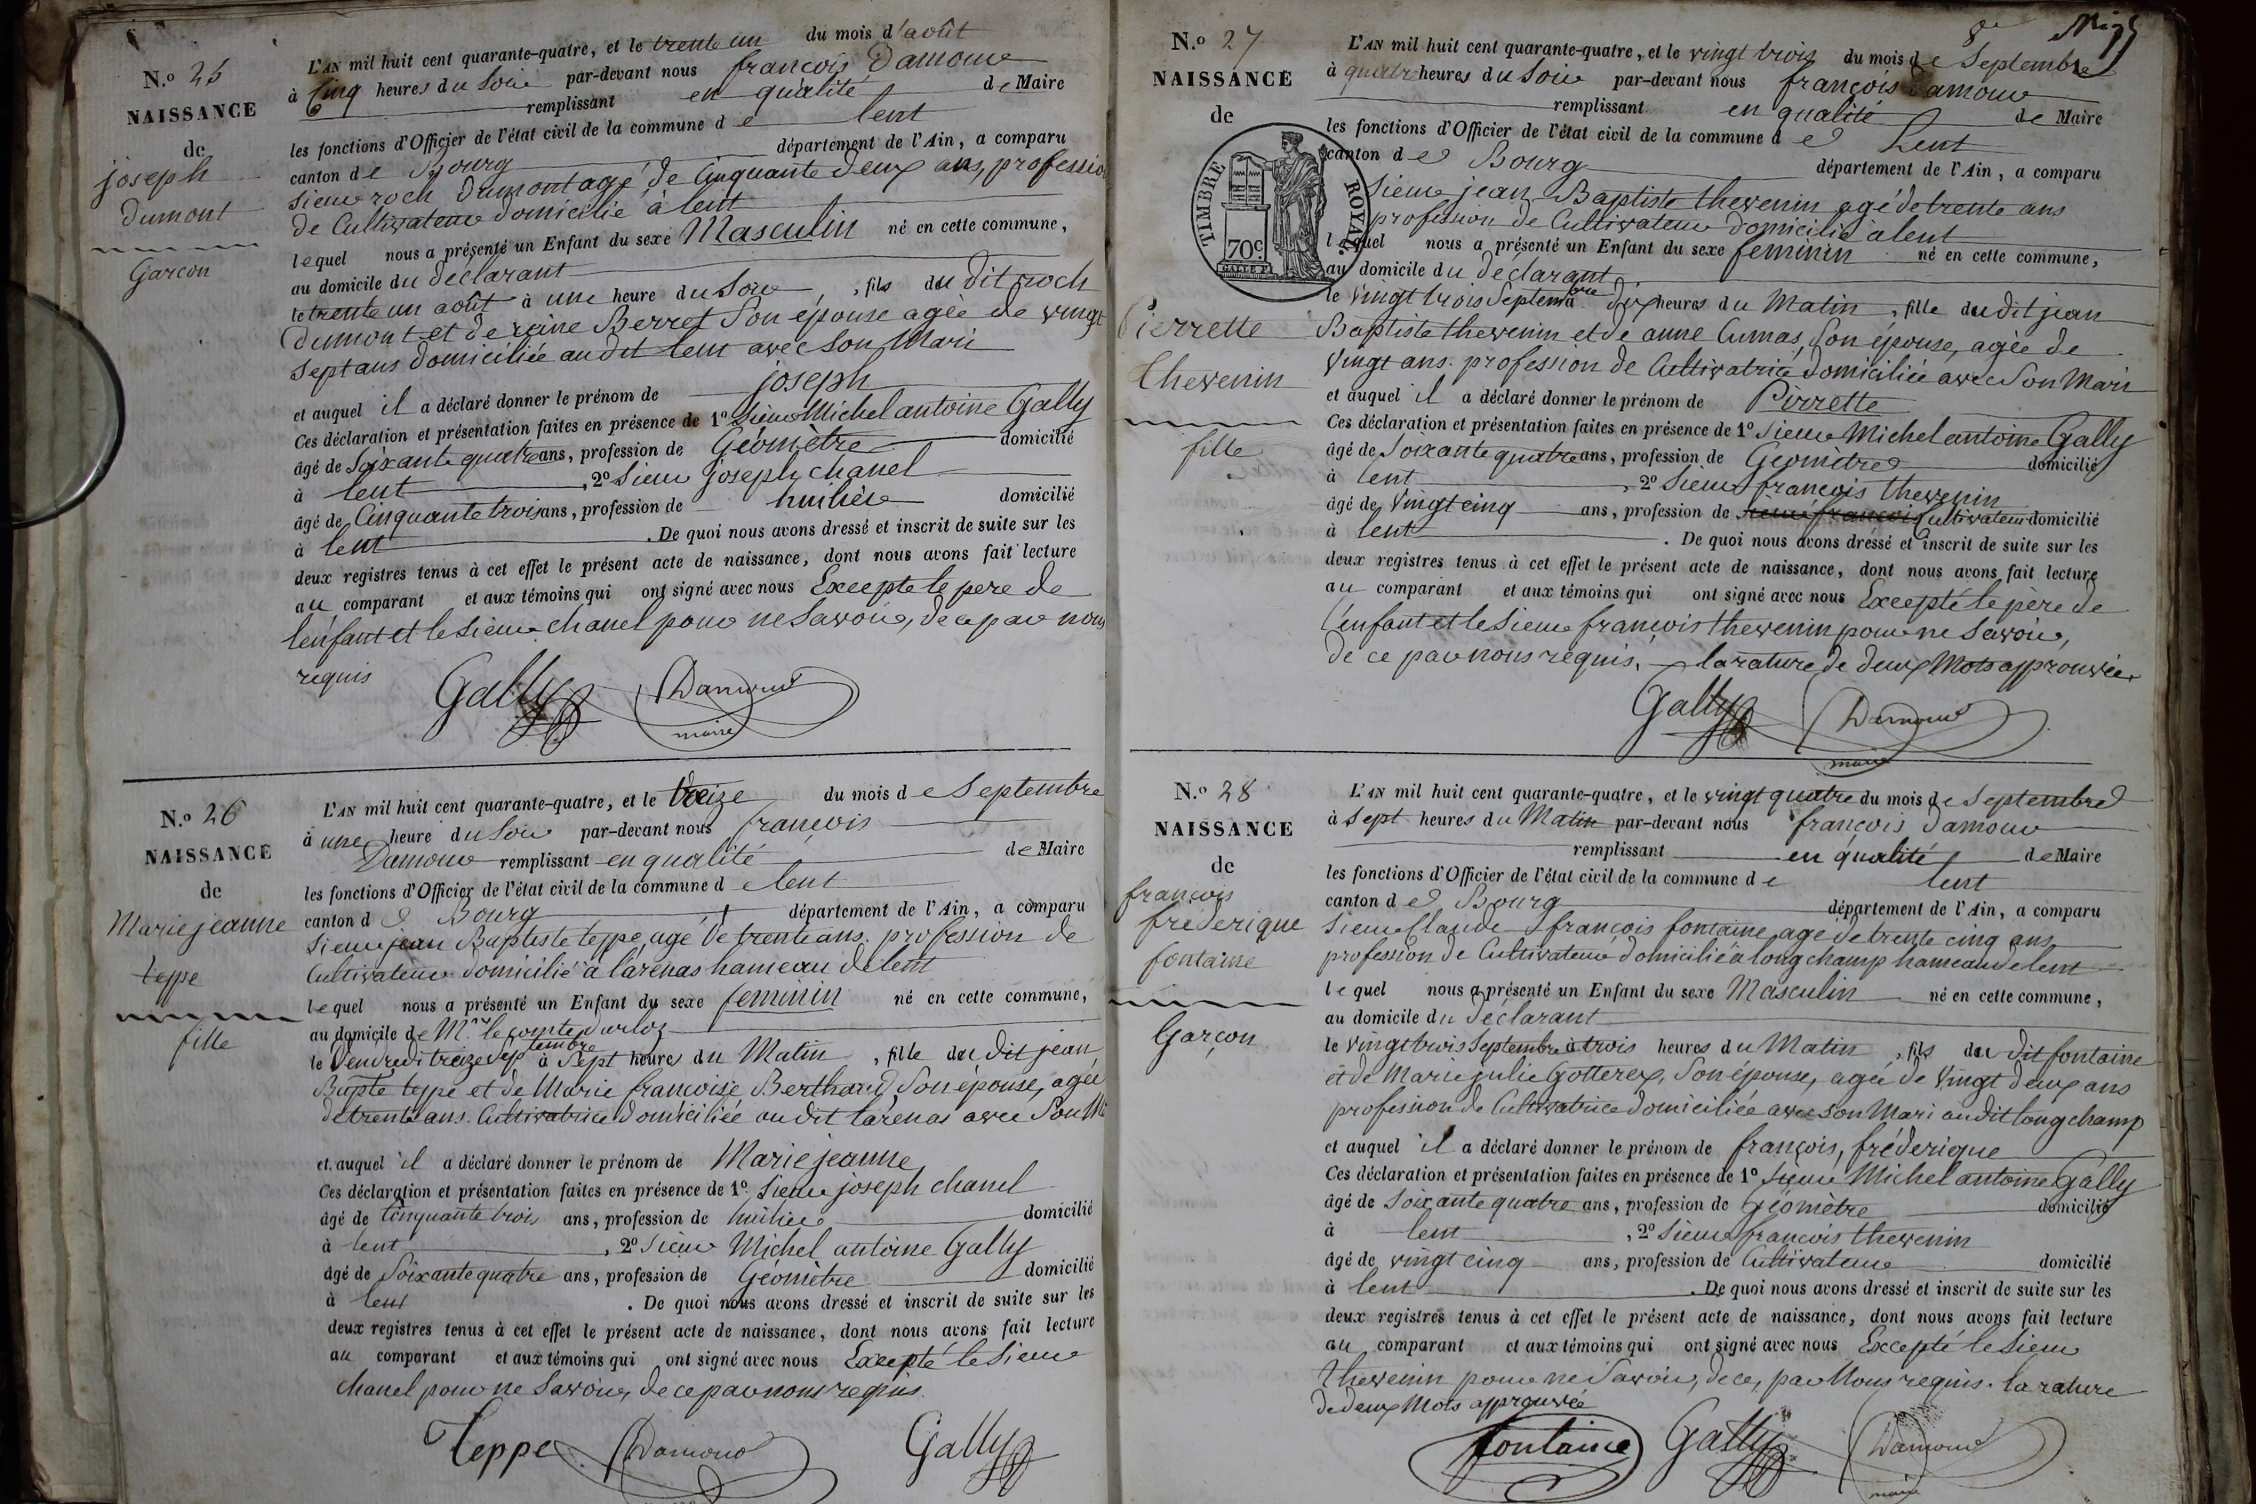 N.o 25
NAISSANCE
de
joseph
Dumont
Garcon
L'AN mil huit cent quarante-quatre, et le trente un du mois d'août
à Cinq heures du Soir par-devant nous françois Damour
remplissant en qualité de Maire
les fonctions d'Officier de l'état civil de la commune de lent
canton de Bourg département de l'Ain, a comparu
Sieur roch Dumont agé de Cinquante deux ans, profession
de Cultivateur domicilié à lent
lequel nous a présenté un Enfant du sexe Masculin né en cette commune,
au domicile du déclarant
le trente un août à une heure du Soir, fils du dit roch
Dumont et de reine Berret Son épouse agée de vingt
Sept ans domiciliée au dit lent avec Son Mari
et auquel il a déclaré donner le prénom de joseph
Ces déclaration et présentation faites en présence de 1o Sieur Michel antoine Gally
âgé de Soixante quatre ans, profession de Géomètre domicilié
à lent, 2o Sieur joseph chanel
âgé de Cinquante trois ans, profession de huilier domicilié
à lent. De quoi nous avons dressé et inscrit de suite sur les
deux registres tenus à cet effet le présent acte de naissance, dont nous avons fait lecture
au comparant et aux témoins qui ont signé avec nous Excepte le pere de
l'enfant et le Sieur chanel pour ne Savoir, de ce par nous
requis
Gally Damour
maire
N.o 26
NAISSANCE
de
Marie jeanne
teppe
fille
L'AN mil huit cent quarante-quatre, et le treize du mois de Septembre
à une heure du Soir par-devant nous françois
Damour remplissant en qualité de Maire
les fonctions d'Officier de l'état civil de la commune de lent
canton de Bourg département de l'Ain, a comparu
Sieur jean Baptiste teppe, agé de trente ans. profession de
Cultivateur domicilié à larenas hameau de lent
lequel nous a présenté un Enfant du sexe feminin né en cette commune,
au domicile de Mr le comte Durloz
le Vendredi treize Septembre à Sept heures du Matin, fille du dit jean
Bapte teppe et de Marie francoise Berthaud, Son épouse, agée
de trente ans. Cultivatrice domiciliée au dit larenas avec Son M
et auquel il a déclaré donner le prénom de Marie jeanne
Ces déclaration et présentation faites en présence de 1o Sieur joseph chanel
âgé de Cinquante trois ans, profession de huilier domicilié
à lent, 2o Sieur Michel antoine Gally
âgé de Soixante quatre ans, profession de Géomètre domicilié
à lent. De quoi nous avons dressé et inscrit de suite sur les
deux registres tenus à cet effet le présent acte de naissance, dont nous avons fait lecture
au comparant et aux témoins qui ont signé avec nous Excepté le Sieur
chanel pour ne Savoir, de ce par nous requis.
Teppe Damour Gally
N.o 27
NAISSANCE
de
TIMBRE ROYAL.
70c
Pierrette
Thevenin
fille
L'AN mil huit cent quarante-quatre, et le vingt trois du mois de Septembre
à quatre heures du Soir par-devant nous françois Damour
remplissant en qualité de Maire
les fonctions d'Officier de l'état civil de la commune de Lent
canton de Bourg département de l'Ain, a comparu
Sieur jean Baptiste thevenin agé de trente ans
profession de Cultivateur domicilié a lent
lequel nous a présenté un Enfant du sexe feminin né en cette commune,
au domicile du déclarant
le Vingt trois Septembre dix heures du Matin, fille du dit jean
Baptiste thevenin et de anne Cumas, Son épouse, agée de
Vingt ans. profession de Cultivatrice domiciliée avec Son Mari
et auquel il a déclaré donner le prénom de Pirrette
Ces déclaration et présentation faites en présence de 1o Sieur Michel antoine Gally
âgé de Soixante quatre ans, profession de Géomètre domicilié
à lent, 2o Sieur françois thevenin
âgé de Vingt cinq ans, profession de Sieur françois Cultivateur domicilié
à lent. De quoi nous avons dressé et inscrit de suite sur les
deux registres tenus à cet effet le présent acte de naissance, dont nous avons fait lecture
au comparant et aux témoins qui ont signé avec nous Excepté le père de
l'enfant et le Sieur françois thevenin pour ne Savoir,
de ce par nous requis. la rature de deux Mots approuvée
Gally Damour
maire
N.o 28
NAISSANCE
de
françois
fréderique
fontaine
Garçon
L'AN mil huit cent quarante-quatre, et le vingt quatre du mois de Septembre
à Sept heures du Matin par-devant nous françois Damour
remplissant en qualité de Maire
les fonctions d'Officier de l'état civil de la commune de lent
canton de Bourg département de l'Ain, a comparu
Sieur Claude françois fontaine, agé de trente cinq ans
profession de Cultivateur domicilié à longchamp hameau de lent
lequel nous a présenté un Enfant du sexe Masculin né en cette commune,
au domicile du déclarant
le Vingt trois Septembre à trois heures du Matin, fils du dit fontaine
et de Marie julie Gotterex, Son épouse, agée de Vingt deux ans
profession de Cultivatrice domiciliée avec son Mari au dit longchamp
et auquel il a déclaré donner le prénom de françois, fréderique
Ces déclaration et présentation faites en présence de 1o Sieur Michel antoine Gally
âgé de Soixante quatre ans, profession de Géomètre domicilié
à lent, 2o Sieur francois thevenin
âgé de vingt cinq ans, profession de Cultivateur domicilié
à lent. De quoi nous avons dressé et inscrit de suite sur les
deux registres tenus à cet effet le présent acte de naissance, dont nous avons fait lecture
au comparant et aux témoins qui ont signé avec nous Excepté le Sieur
Thevenin pour ne Savoir, de ce, par Nous requis. la rature
de deux Mots approuvée
fontaine Gally Damour
maire